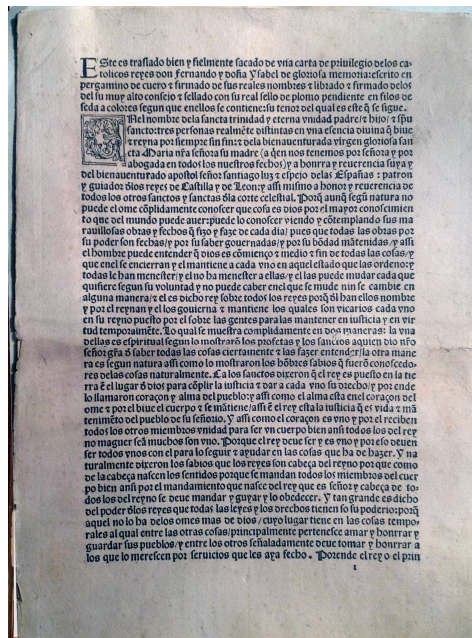 ESte es traslado bien y fielmente sacado de vna carta de priuilegio delos ca-
tolicos reyes don fernando y doña ysabel de gloriosa memoria: escrito en
pergamino de cuero ⁊ firmado de sus reales nombres ⁊ librado ⁊ firmado delos
del su muy alto consejo ⁊ sellado con su real sello de plomo pendiente en filos de
seda a colores segun que enellos se contiene: su tenor del qual es este q̃ se sigue.
EN el nombre dela sancta trinidad y eterna vnidad padre/⁊ hijo/ ⁊ spũ
sancto: tres personas realmẽte distintas en vna esencia diuina q̃ biue
⁊ reyna por siempre sin fin: ⁊ dela bienauenturada virgen gloriosa san
cta Maria nr̃a señora su madre (a q̃en nos tenemos por señora y por
abogada en todos los nuestros fechos) y a honrra y reuerencia suya y
del bienauenturado apostol señor santiago luz ⁊ espejo delas Españas: patron
y guiador d̃los reyes de Castilla y de Leon: y assi mismo a honor y reuerencia de
todos los otros sanctos y sanctas d̃la corte celestial. Porq̃ aunq̃ segũ natura no
puede el ome cõplidamente conoscer que cosa es dios por el mayor conoscimien
to que del mundo puede auer: puede lo conoscer viendo y cõtemplando sus ma
rauillosas obras y fechos q̃ fizo y faze de cada dia/ pues que todas las obras por
su poder son fechas/ y por su saber gouernadas/ y por su bõdad mãtenidas/ y assi
el hombre puede entender q̃ dios es comienço ⁊ medio ⁊ fin de todas las cosas/ y
que enel se encierran y el mantiene a cada vno en aquel estado que las ordeno: y
todas le han menester/ y el no ha menester a ellas/ y el las puede mudar cada que
quisiere segun su voluntad y no puede caber enel que se mude nin se cambie en
alguna manera/ ⁊ el es dicho rey sobre todos los reyes porq̃ d̃l han ellos nombre
y por el reynan y el los gouierna ⁊ mantiene los quales son vicarios cada vno
en su reyno puesto por el sobre las gentes para las mantener en justicia y en vir
tud temporalmẽte. Lo qual se muestra complidamente en dos maneras: la vna
dellas es espiritual segun lo mostrarõ los profetas y los sanctos aquien dio nr̃o
señor gr̃a d̃ saber todas las cosas ciertamente ⁊ las fazer entender/ la otra mane
ra es segun natura assi como lo mostraron los hõbres sabios q̃ fuerõ conoscedo-
res delas cosas naturalmente. Ca los sanctos dixeron q̃ el rey es puesto en la tie
rra ẽ el lugar d̃ dios para cõplir la iusticia ⁊ dar a cada vno su drecho/ y por ende
lo llamaron coraçon y alma del pueblo: y assi como el alma esta enel coraçon del
ome ⁊ por el biue el cuerpo ⁊ se mãtiene/ assi ẽ el rey esta la iusticia q̃ es vida ⁊ mã
tenimẽto del pueblo de su señorio. Y assi como el coraçon es vno y por el reciben
todos los otros miembros vnidad para ser vn cuerpo bien ansi todos los del rey
no maguer seã muchos son vno. Porque el rey deue ser y es vno y por eso deuen
ser todos vnos con el para lo seguir ⁊ ayudar en las cosas que ha de hazer. Y na
turalmente dixeron los sabios que los reyes son cabeça del reyno porque como
de la cabeça nascen los sentidos porque se mandan todos los miembros del cuer
po bien ansi por el mandamiento que nasce del rey que es señor ⁊ cabeça de to-
dos los del reyno se deue mandar y guyar y lo obedecer. Y tan grande es dicho
del poder d̃los reyes que todas las leyes y los drechos tienen so su poderio: porq̃
aquel no lo ha delos omes mas de dios/ cuyo lugar tiene en las cosas tempo-
rales al qual entre las otras cosas/ principalmente pertenesce amar y honrrar y
guardar sus pueblos/ y entre los otros señaladamente deue tomar y honrrar a
los que lo merescen por seruicios que les aya fecho. Porende el rey o el prin
1